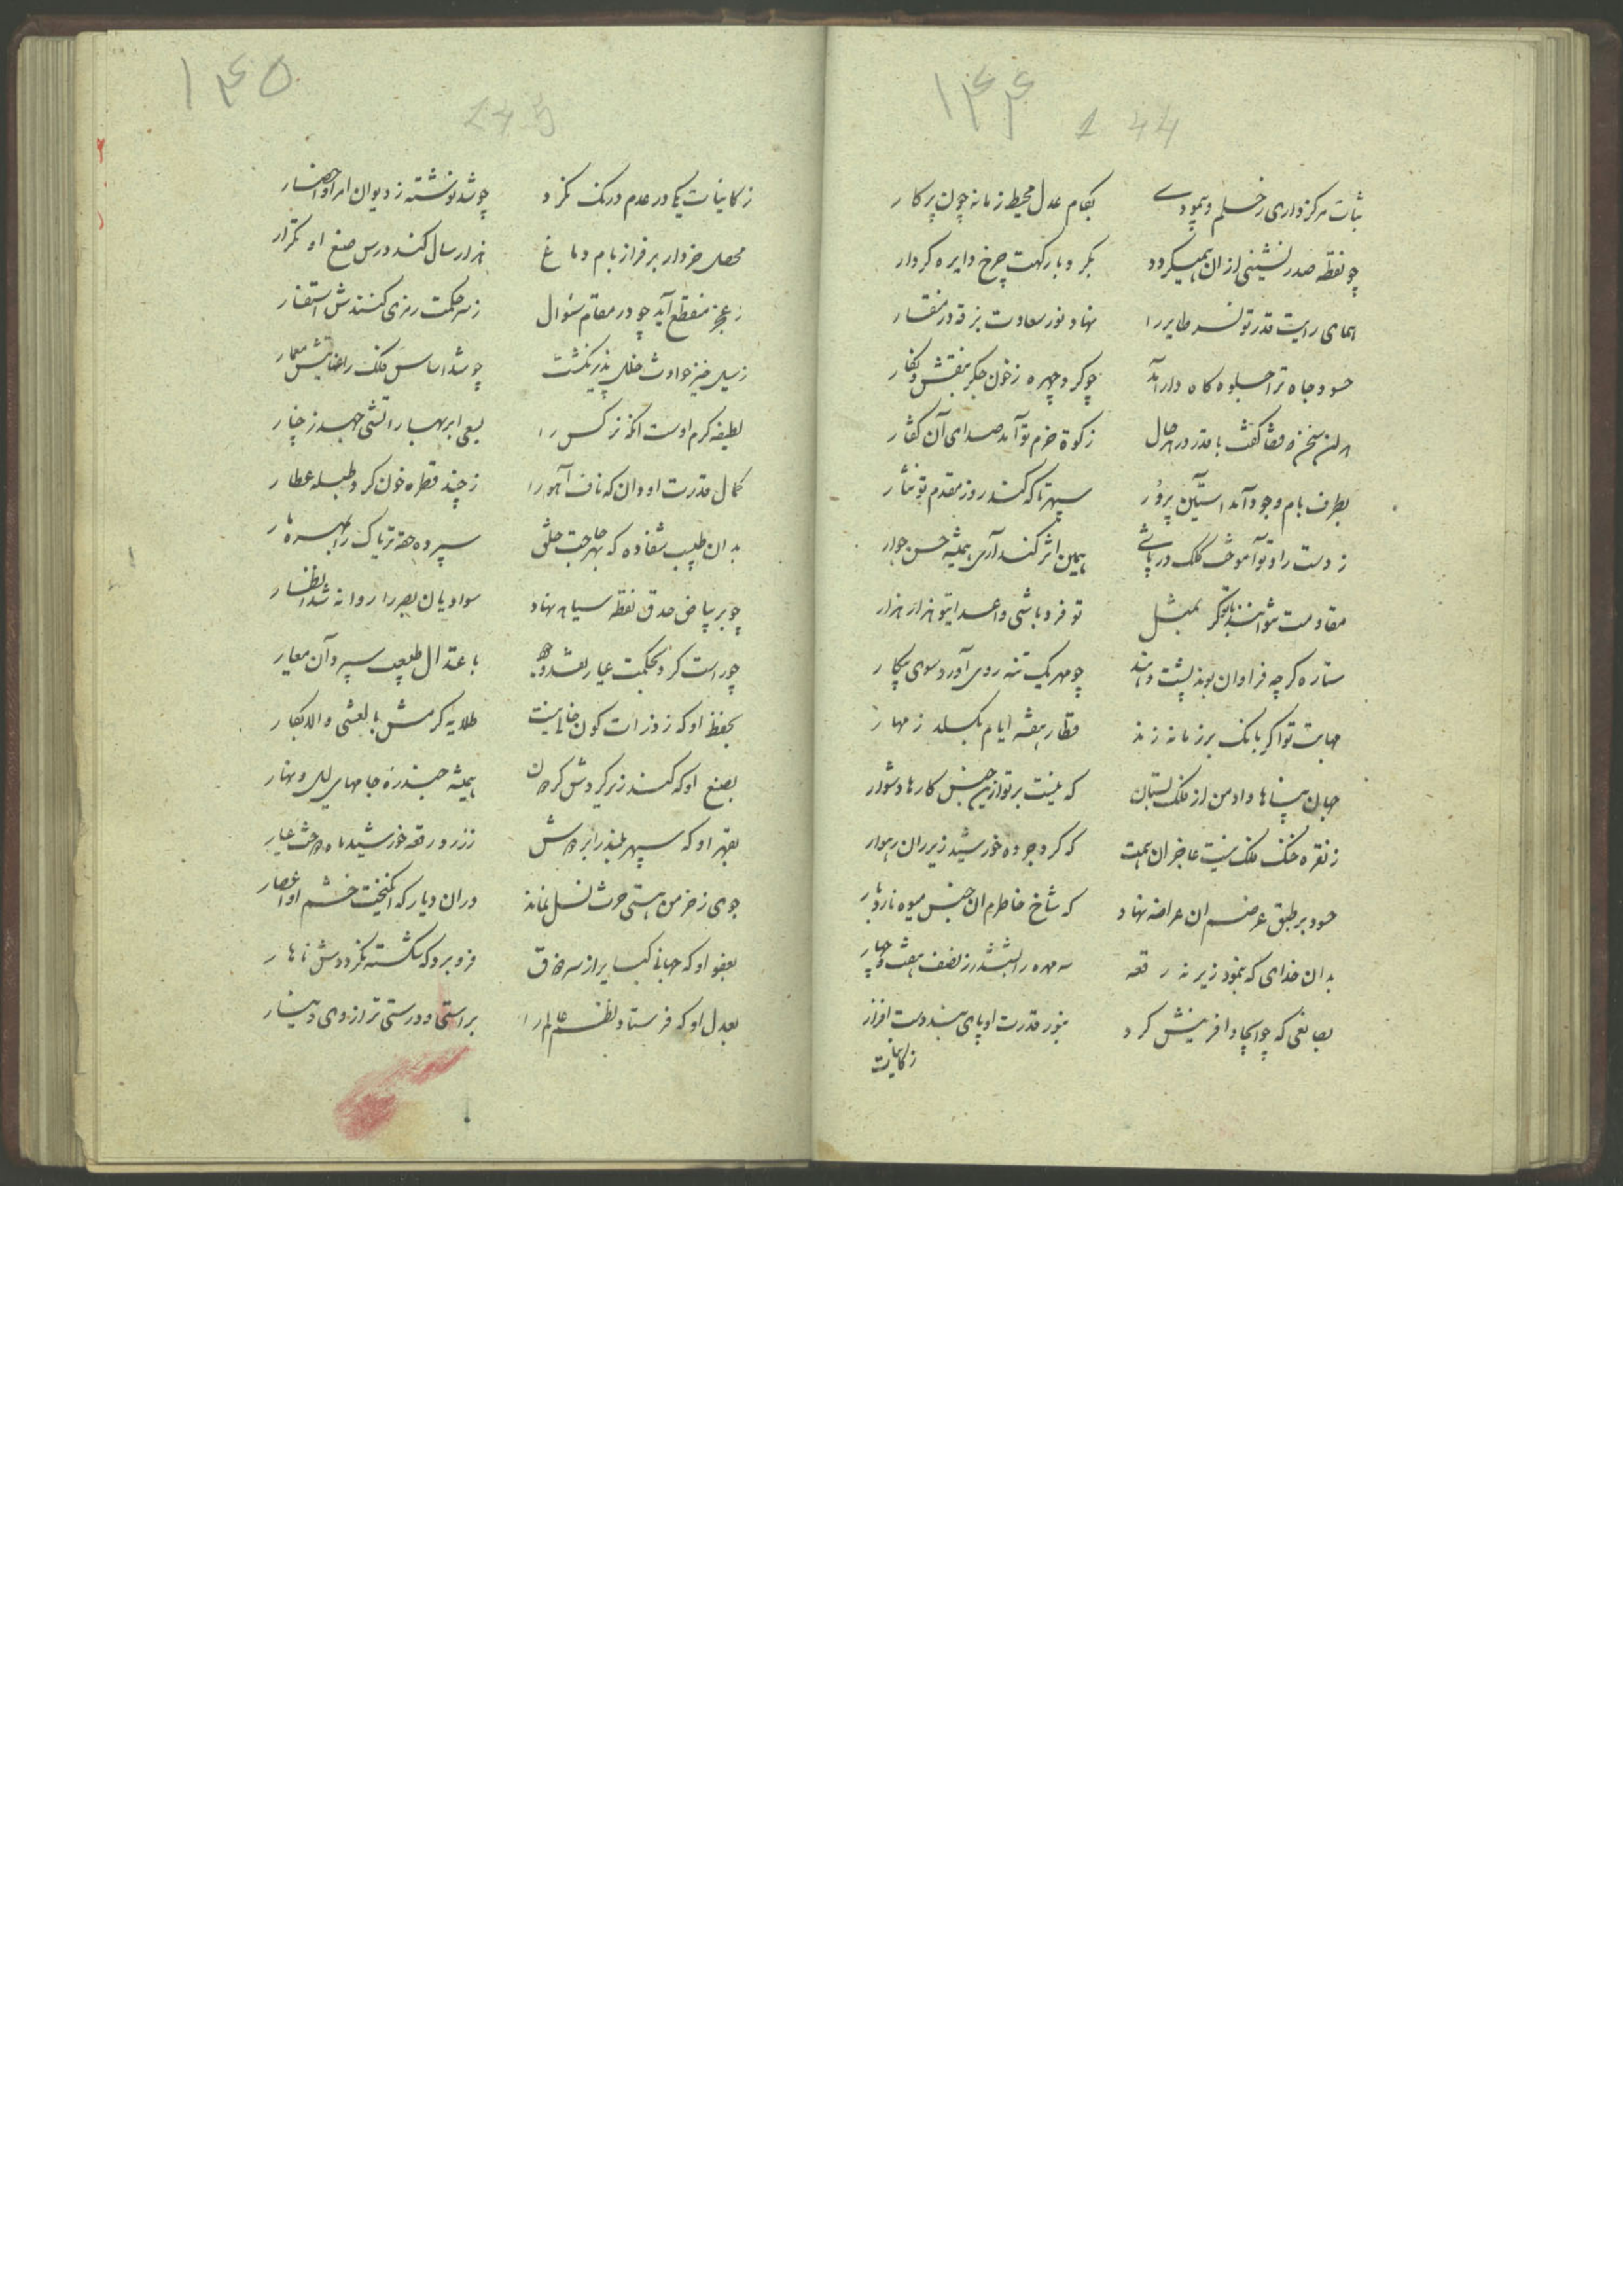 ۱۴۴
144
ثبات مرکز داری ز حلم و پیمودے بکام عدل محیط زمانه چون پرکار
چو نقطه صدر نشینی از ان همیکردد بکرد بارکهت چرخ دایره کردار
همای رایت قدر تو نسر طایر را نهاد نور سعادت بزقه در منقار
حسود جاه ترا جلوه کاه دار آمد چو کرد چهره ز خون جکر بنقش و نکار
هر ان سخن که قضا کفت با قدر در حال ز کوة حزم تو آمد صدای آن کفتار
بطرف بام وجود آمد استین پر در سپهر تا که کند روز مقدم تو نثار
ز دست راد تو آموخت کلک در پاشے همین اثر کند آری همیشه حسن جوار
مقاومت نتوانند با تو کر بمثل تو فرد باشی و اعدای تو هزار هزار
ستاره کرچه فراوان بوند پشت دهند چو مهر یک تنه روی آورد سوی پیکار
مهابت تو اکر بانک بر زمانه زند قطار هفته ایام بکسلد ز مهار
جهان پناها داد من از فلک بستان که نیست بر تو ازین جنس کارها دشوار
ز نقره خنک فلک نیست عاجز ان همت که کرد جرده خورشید زیر ران رهوار
حسود بر طبق عرض ان عراضه نهاد که شاخ خاطرم ان جنس میوه نارد بار
بدان خدای که بنمود زیر نه رقعه سه مهره را بششدر ز نصف هفت و چهار
بصانعی که چو ایجاد افرینش کرد بنور قدرت او پای بند دست افزار
ز کاینات
۱۴۵
145
ز کاینات یکی در عدم درنک نکرد چو شد نوشته ز دیوان امر او احضار
محصل خرد ار بر فراز بام دماغ هزار سال کند درس صنع او تکرار
ز عجز منقطع آید چو در مقام سئوال ز سر حکمت رمزی کنندش استفسار
ز سیل خیز حوادث خلل پذیر نکشت چو شد اساس فلک را عنایتش معمار
لطیفه کرم اوست انکه نرکس را بسعی ابر بهار آتشی جهد ز چنار
کمال قدرت او دان که ناف آهو را ز چند قطره خون کرد طبله عطار
بدان طبیب شفا ده که بهر حاجت خلق سپرده حقه تریاک را بمهره مار
چو بر بیاض حدق نقطه سیاه نهاد سوادیان بصر را روانه شد انظار
چو راست کرد بحکمت عیار نقد وجود باعتدال طبیعت سپرد آن معیار
بحفظ او که ز ذرات کون خالی نیست طلایه کرمش بالعشی والابکار
بصنع او که کند زیر کردش کردون همیشه جندره جامهای لیل و نهار
بقهر او که سپهر بلند را بردش
جوی ز خرمن هستی حرث نسل نماند در ان دیار که انکیخت خشم او اعصار
بعفو او که جهانی کبایر از سر خلق فرو برد که شکسته نکرددش ناهار
بعدل او که فرستاد نظم عالم را براستی و درستی ترازوی دینار